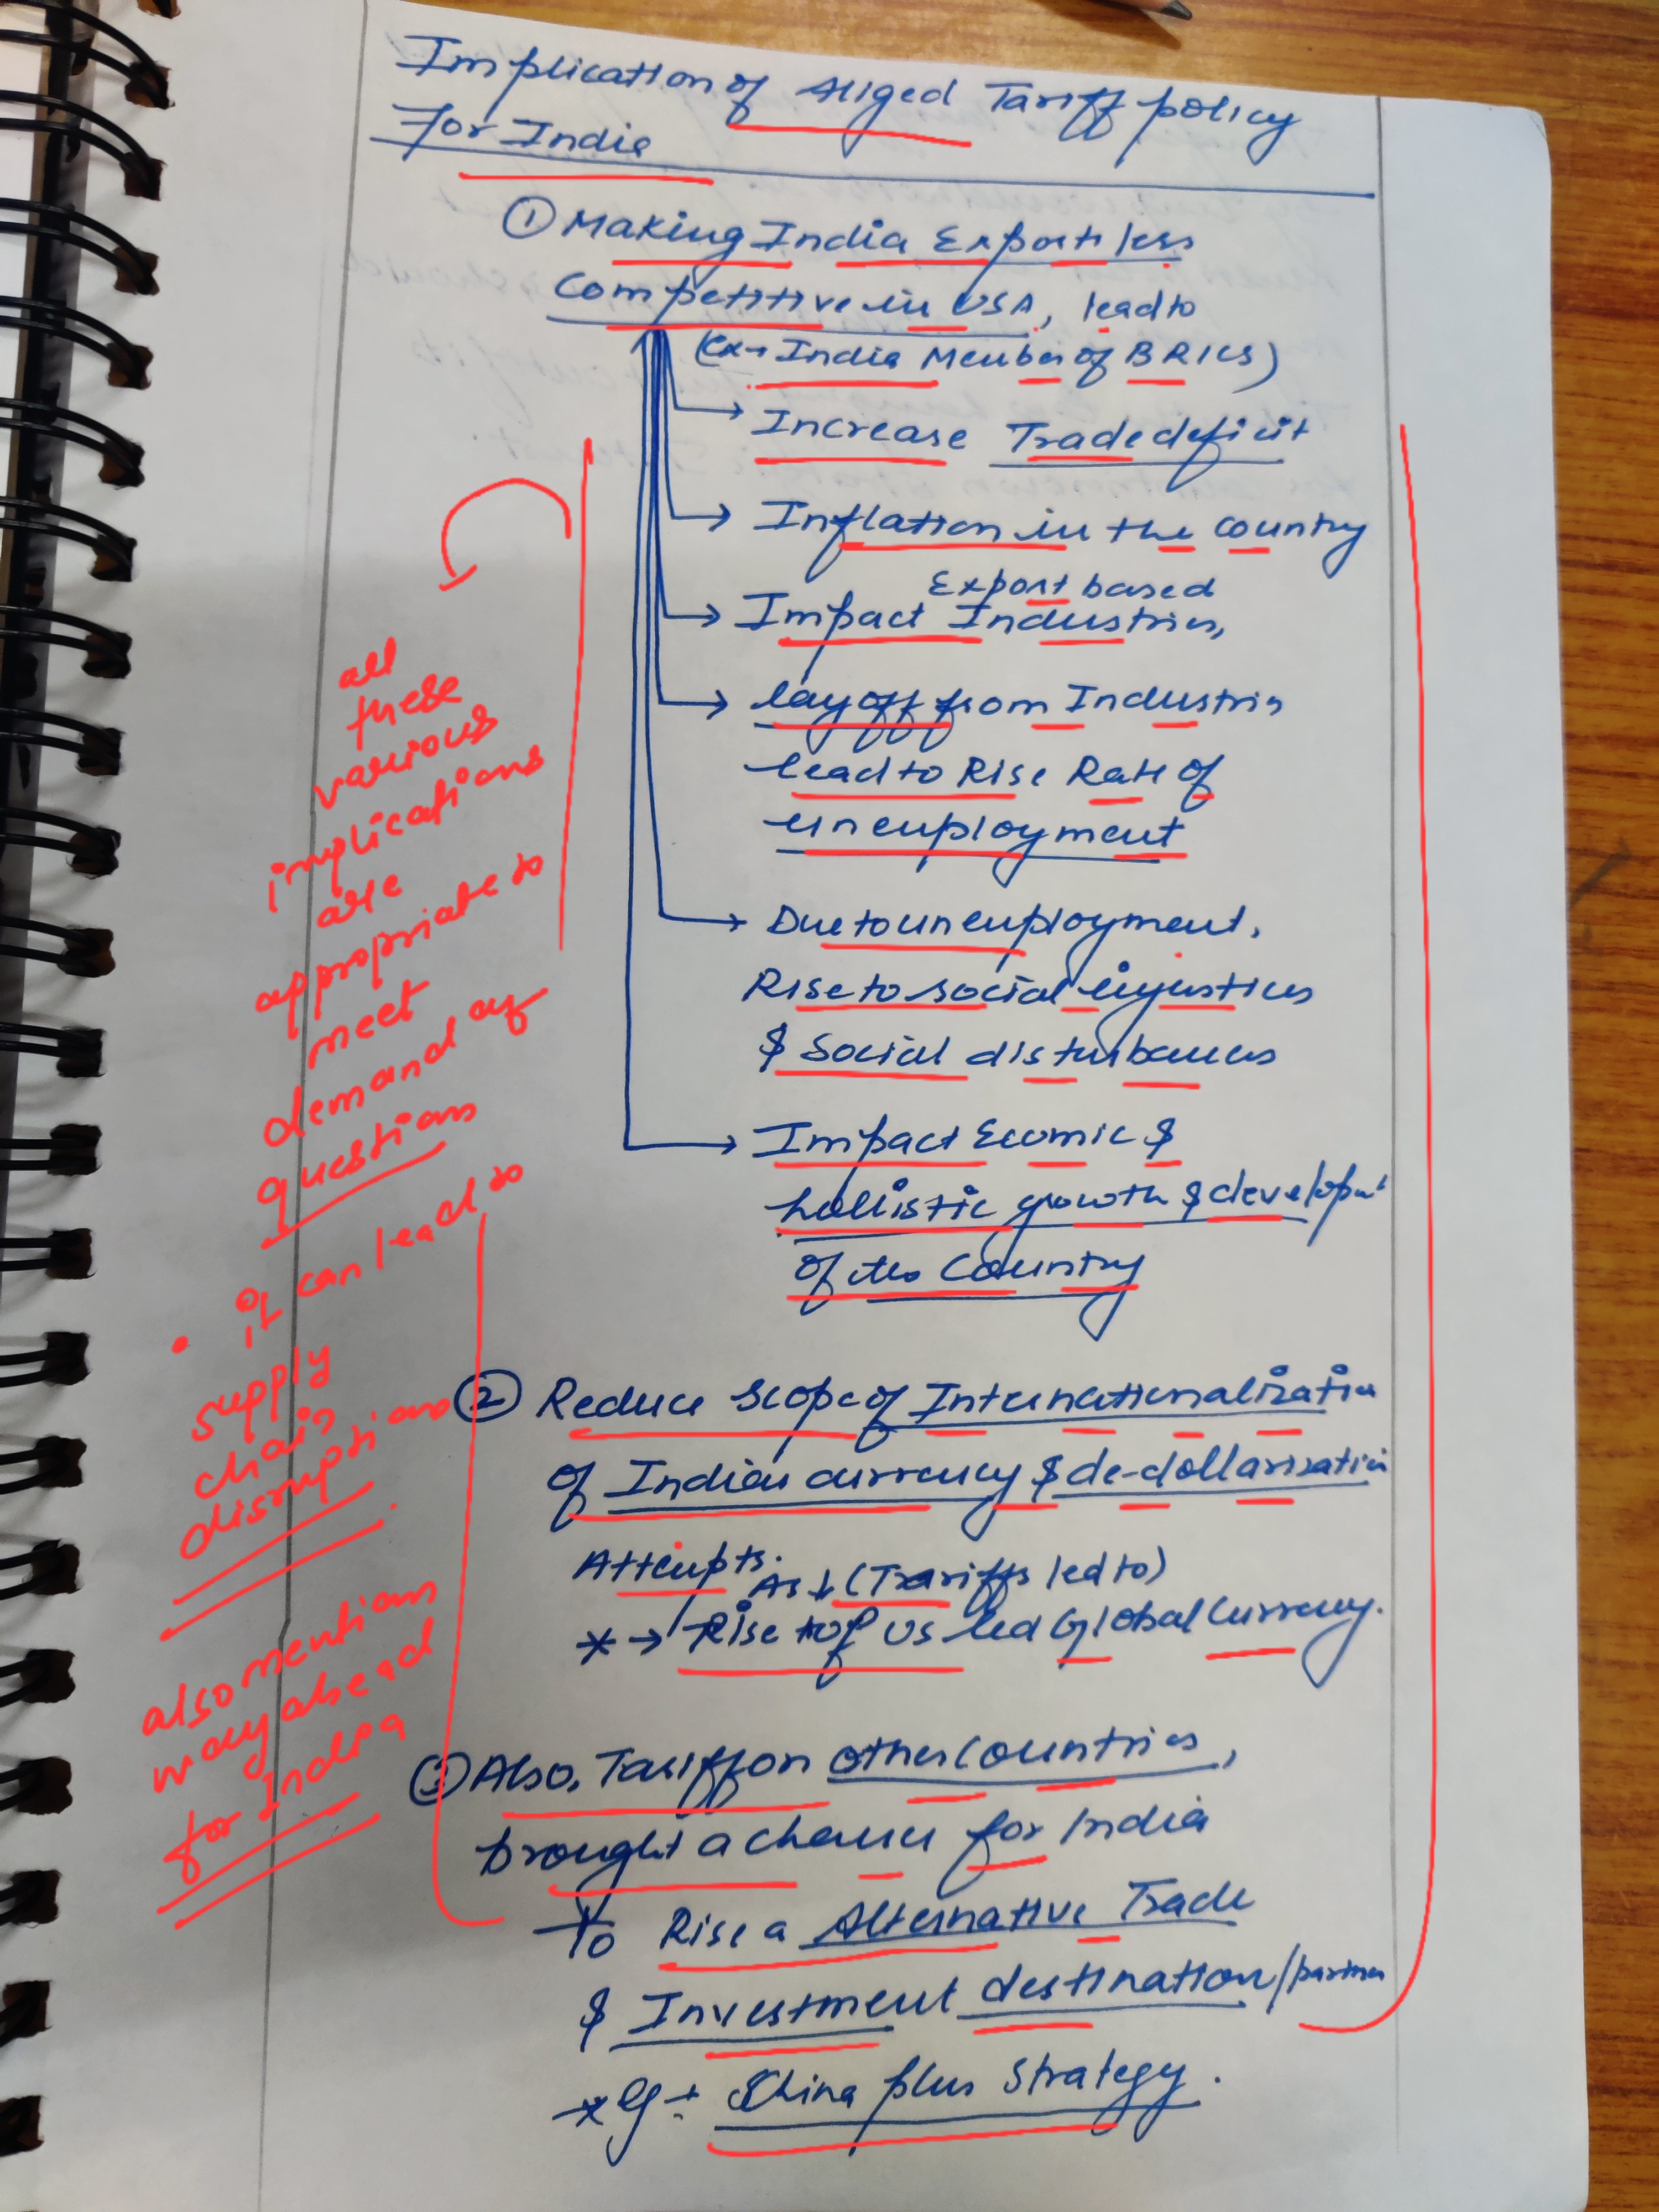 Implication of Aliged Tariff policy
For India
① Making India Exports less
Competitive in USA, lead to
(Ex→ India Member of BRICS)
Increase Trade deficit
Inflation in the country
Export based
Impact Industries,
layoff from Industries
lead to Rise Rate of
unemployment
Due to unemployment,
Rise to social injustices
& Social disturbances
Impact Ecomic &
hollistic growth & developmt
of the Country
② Reduce scope of Internationalization
of Indian currency & de-dollarisation
Attempts.
As ↓ (Tariffs led to)
* → Rise of US led Global Currency.
③ Also, Tariff on other Countries,
brought a chance for India
To Rise a Alternative Trade
& Investment destination/partner
* Eg → China plus Strategy.
all
these
various
implications
are
appropriate to
meet
demand of
questions
• it can lead to
supply
chain
disruptions
also mentions
way ahead
for India